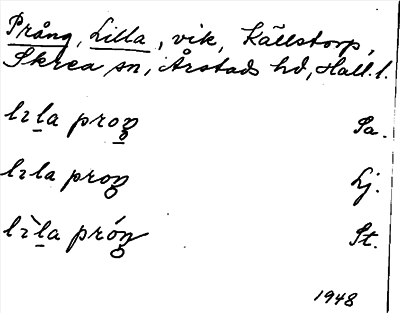 Prång, Lilla, vik, Källstorp,
Skrea sn, Årstads hd, Hall. l.
lɪḻa proŋ̱ Sa.
lɪla proŋ Lj.
lɪ̀ḻa próŋ St.
1948